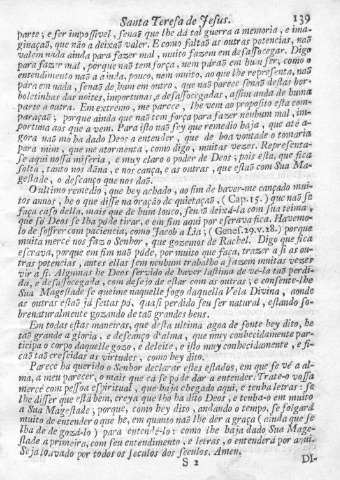 Santa Teresa de Jesus. 139
parte; e ser impossivel, senaõ que lhe dá tal guerra a memoria, e ima-
ginaçaõ, que não a deixaõ valer. E como faltaõ as outras potencias, naõ
valem nada ainda para fazer mal, muito fazem em desassocegar. Digo
para fazer mal, porque naõ tem força, nem páraõ em hum ser, como o
entendimento naõ a ajuda, pouco, nem muito, ao que lhe representa, naõ
pára em nada, senaõ de hum em outro, que naõ parece senaõ destas bor-
boletinhas das noites, importunas, e desassocegadas, assim anda de huma
parte a outra. Em extremo, me parece, lhe vem ao proposito esta com-
paraçaõ; porque ainda que naõ tem força para fazer nenhum mal, im-
portuna aos que a vem. Para isto naõ sey que remedio haja, que até á-
gora naõ mo ha dado Deos a entender, que de boa vontade o tomaria
para mim, que me atormenta, como digo, muitas vezes. Representa-
se aqui nossa miseria, e muy claro o poder de Deos; pois esta, que fica
solta, tanto nos dána, e nos cança, e as outras, que estaõ com Sua Ma-
gestade, o descanço que nos daõ.
O ultimo remedio, que hey achado, ao fim de haver-me cançado mui-
tos annos, he o que disse na oraçaõ de quietaçaõ, (Cap. 15.) que naõ se
faça caso della, mais que de hum louco, senaõ deixá-la com sua teima;
que só Deos se lha póde tirar, e em fim aqui por escrava fica. Havemo-
lo de soffrer com paciencia, como Jacob a Lia; (Genes. 29. v. 28.) porque
muita merce nos faz o Senhor, que gozemos de Rachel. Digo que fica
escrava, porque em fim naõ póde, por muito que faça, trazer a si as ou-
tras potencias, antes ellas sem nenhum trabalho a fazem muitas vezes
vir a si. Algumas he Deos servido de haver lastima de vê-la taõ perdi-
da, e desassocegada, com desejo de estar com as outras; e consente-lhe
Sua Magestade se queime naquelle fogo daquella véla Divina, aonde
as outras estaõ já feitas pó, quasi perdido seu ser natural, estando so-
brenaturalmente gozando de taõ grandes bens.
Em todas estas maneiras, que desta ultima agoa de fonte hey dito, he
taõ grande a gloria, e descanço d'alma, que muy conhecidamente par-
ticipa o corpo daquelle gozo, e deleite, e isto muy conhecidamente, e fi-
caõ taõ crescidas as virtudes, como hey dito.
Parece ha querido o Senhor declarar estes estados, em que se vé a al-
ma, a meu parecer, o mais que cá se póde dar a entender. Trate-o vossa
mercê com pessoa espiritual, que haja chegado aqui, e tenha letras: se
lhe disser que está bem, creya que lho ha dito Deos, e tenha-o em muito
a Sua Magestade; porque, como hey dito, andando o tempo, se folgará
muito de entender o que he, em quanto naõ lhe der a graça (ainda que se
lha dê de gozá-lo) para entendê-lo: como lhe haja dado Sua Mage-
stade a primeira, com seu entendimento, e letras, o entenderá por aqui.
Seja louvado por todos os seculos dos seculos, Amen.
S 2 DI-